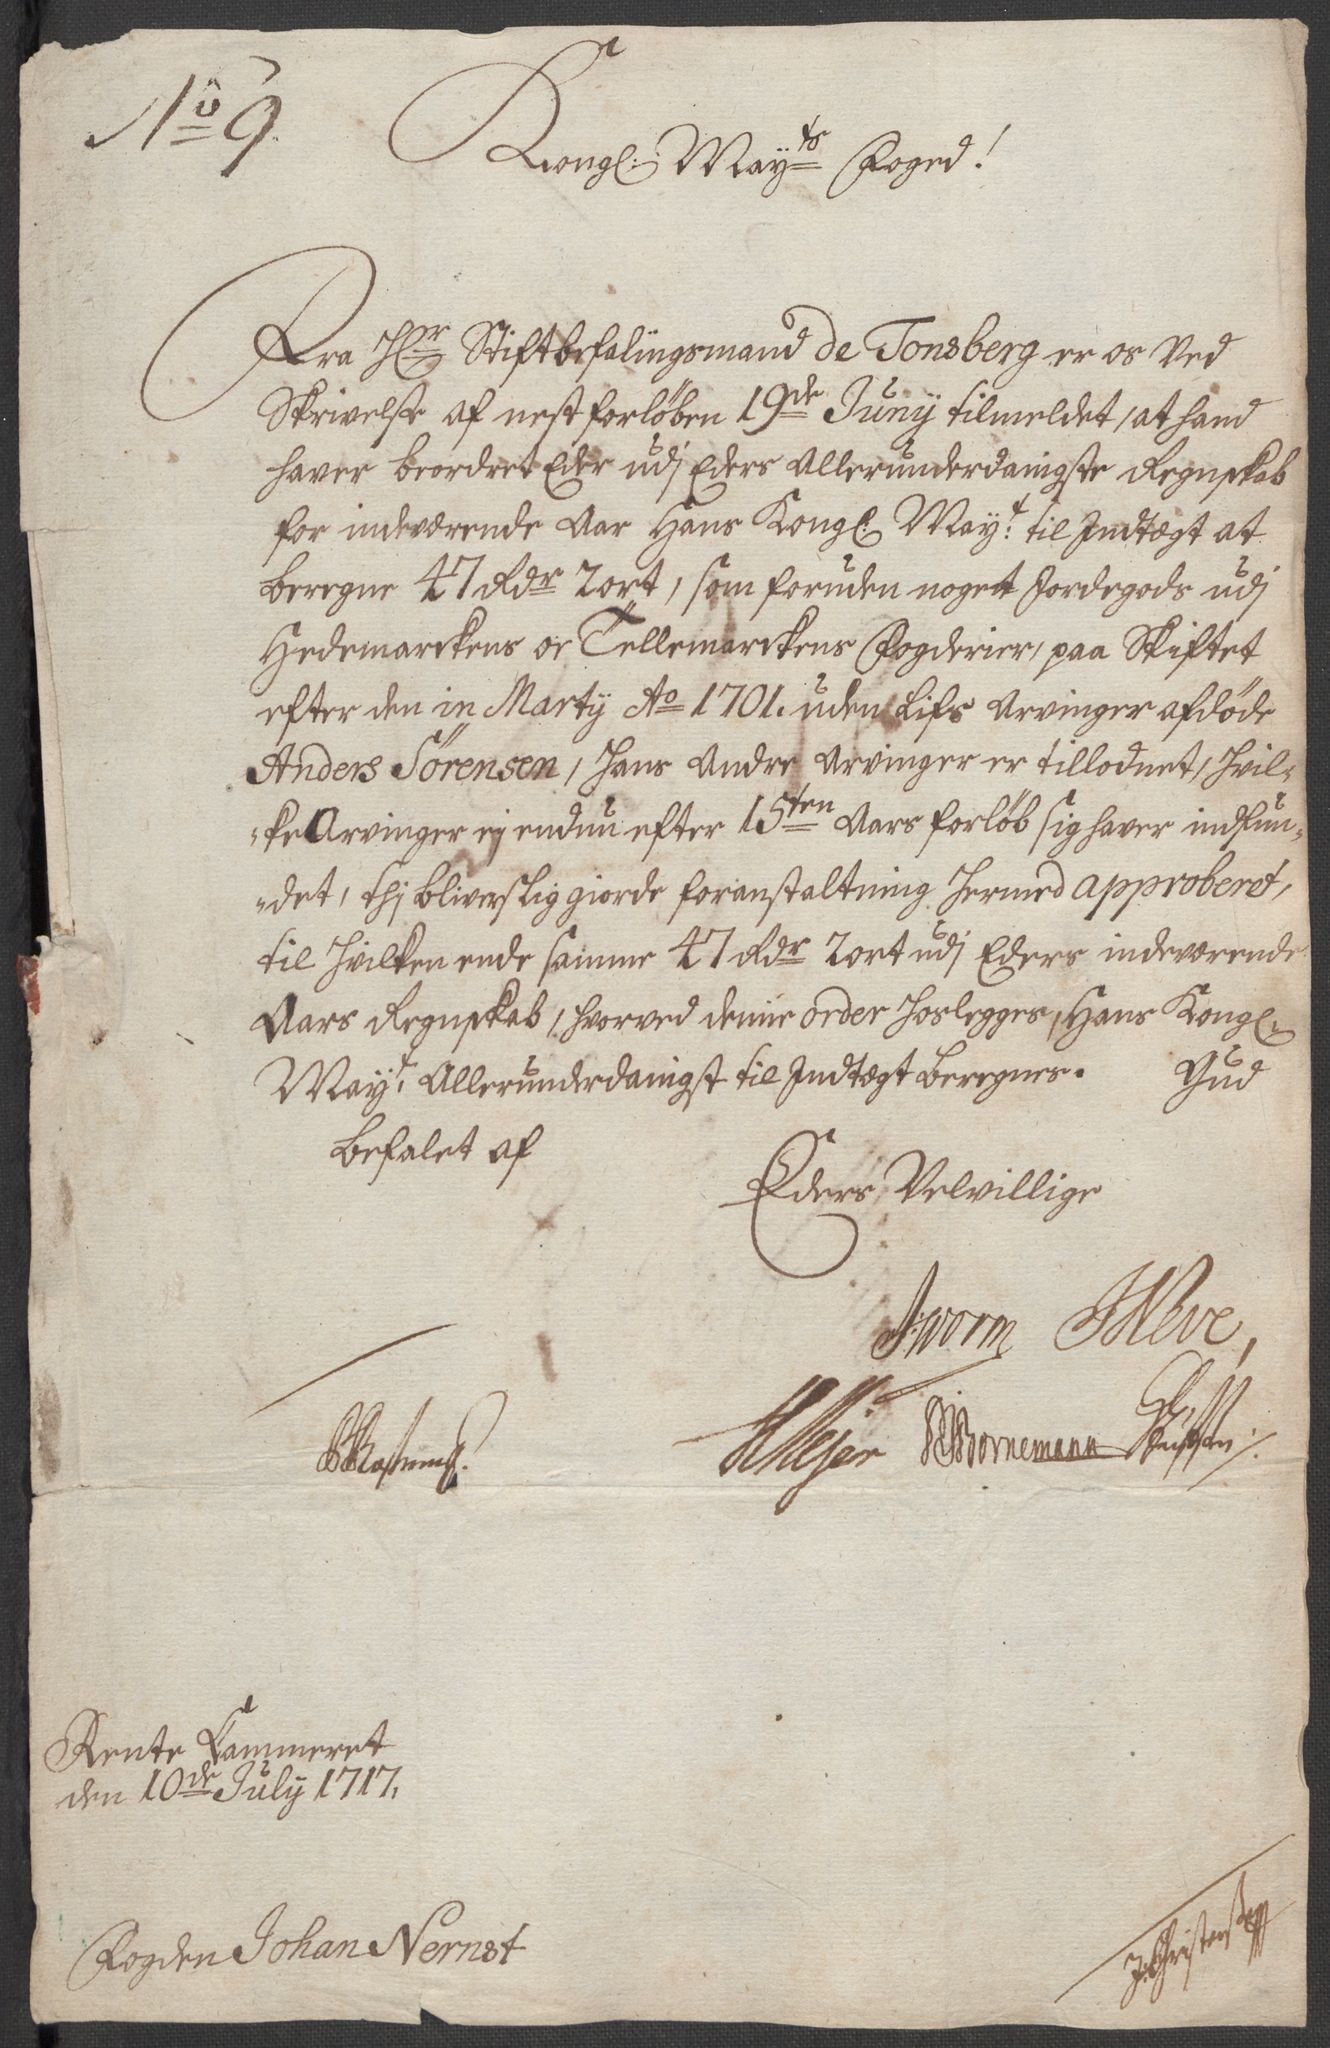 No 9.
Kongl: Mayts Foged!
Fra Hr Stiftbefalingsmand de Tonsberg er os ved
Skrivelse af nestforløben 19de Juny tilmeldet, at hand
haver beordret Eder udj Eders Allerunderdanigste Regnskab
for indeværende Aar Hans Kongl: Mayt. til Indtægt at
beregne 47 Rdr 2 ort, som foruden noget Jordegods udj
Hedemarckens oc Tellemarckens Fogderier, paa Skiftet
efter den in Marty Ao 1701. uden Lifs Arvinger afdøde
Anders Sørensen, hans Andre Arvinger er tillodnet, hvil-
-ke Arvinger ej endnu efter 15ten Aars forløb sig haver indfun-
-det, thj bliver slig giorde foranstaltning hermed approberet,
til hvilken ende samme 47 Rdr 2 ort udj Eders indeværende
Aars Regnskab, hvorved denne order hoslegges, Hans Kongl.
Mayt. Allerunderdanigst til Indtægt beregnes. Gud
befalet af
Eders Velvillige
Worm JWeve,
Meyer Bornemann
Rente Cammeret
den 10de July 1717.
Fogden Johan Nernst
J: Christens